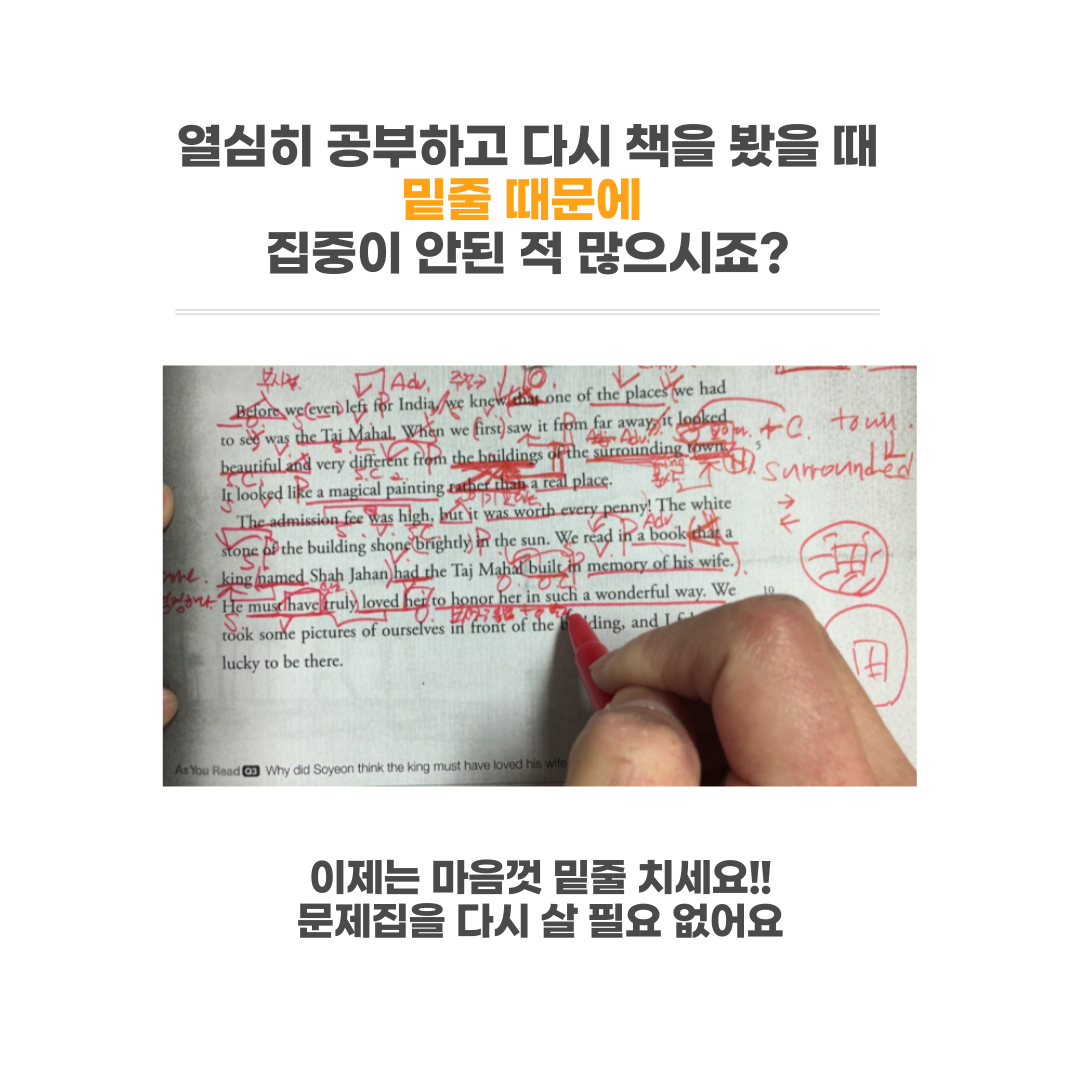 열심히 공부하고 다시 책을 봤을 때
밑줄 때문에
집중이 안된 적 많으시죠?
Adv.
Before we (even) left for India, we knew that one of the places we had
to see was the Taj Mahal. When we (first) saw it from far away, it looked
+ C. town.
Adv.
beautiful and very different from the buildings of the surrounding town.
5
surrounded
It looked like a magical painting rather than a real place.
The admission fee was high, but it was worth every penny! The white
Adv
stone of the building shone brightly in the sun. We read in a book that a
king named Shah Jahan had the Taj Mahal built in memory of his wife.
He must have truly loved her to honor her in such a wonderful way. We
10
took some pictures of ourselves in front of the building, and I
lucky to be there.
As You Read Q3 Why did Soyeon think the king must have loved his wife
이제는 마음껏 밑줄 치세요!!
문제집을 다시 살 필요 없어요